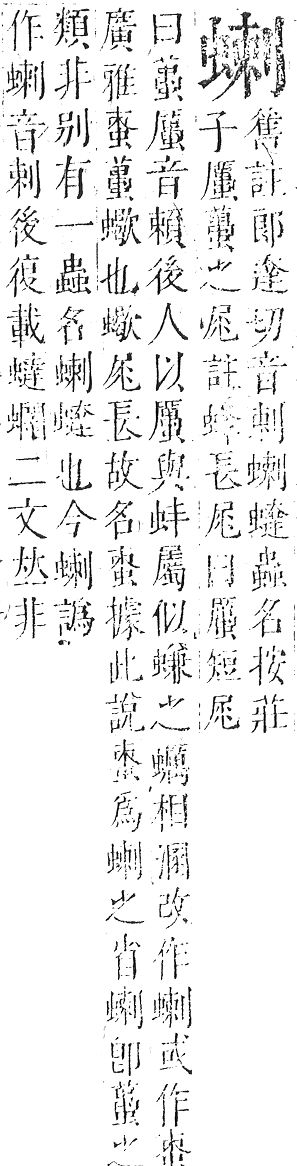 蝲舊註郎達切音剌蝲蟽蟲名按莊
子蠇蠆之尾註蜂長尾曰蠇短尾
曰蠆蠇音賴後人以蠇與蚌屬似蠊之蠣相溷改作蝲或作𧊜
廣雅𧊜蠆蠍也蠍尾長故名𧊜據此說𧊜爲蝲之省蝲卽蠆之
類非别有一蟲名蝲蟽也今蝲譌
作蝲音剌後復載蟽蠣二文𠀤非